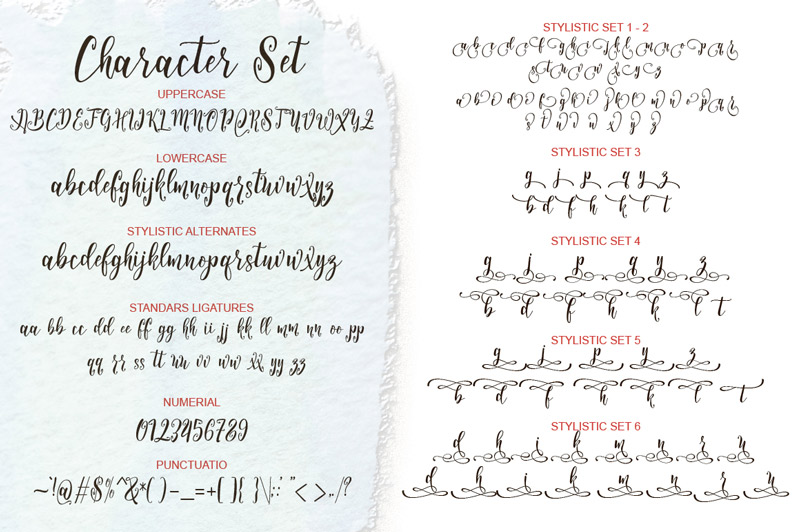 Character Set
UPPERCASE
ABCDEFGHIJKLMNOPQRSTUVWXYZ
LOWERCASE
abcdefghijklmnopqrstuvwxyz
STYLISTIC ALTERNATES
abcdefghijklmnopqrstuvwxyz
STANDARS LIGATURES
aa bb cc dd ee ff gg hh ii jj kk ll mm nn oo pp
qq rr ss tt uu vv ww xx yy zz
NUMERIAL
0123456789
PUNCTUATIO
~`!@#$%^&*()-_=+[]{}\|;:'"<>,./?
STYLISTIC SET 1 - 2
a b c d e f g h i j k l m n o p q r
s t u v w x y z
a b c d e f g h i j k l m n o p q r
s t u v w x y z
STYLISTIC SET 3
g j p q y z
b d f h k l t
STYLISTIC SET 4
g j p q y z
b d f h k l t
STYLISTIC SET 5
g j p y z
b d f h k l t
STYLISTIC SET 6
d h i k m n r u
d h i k m n r u